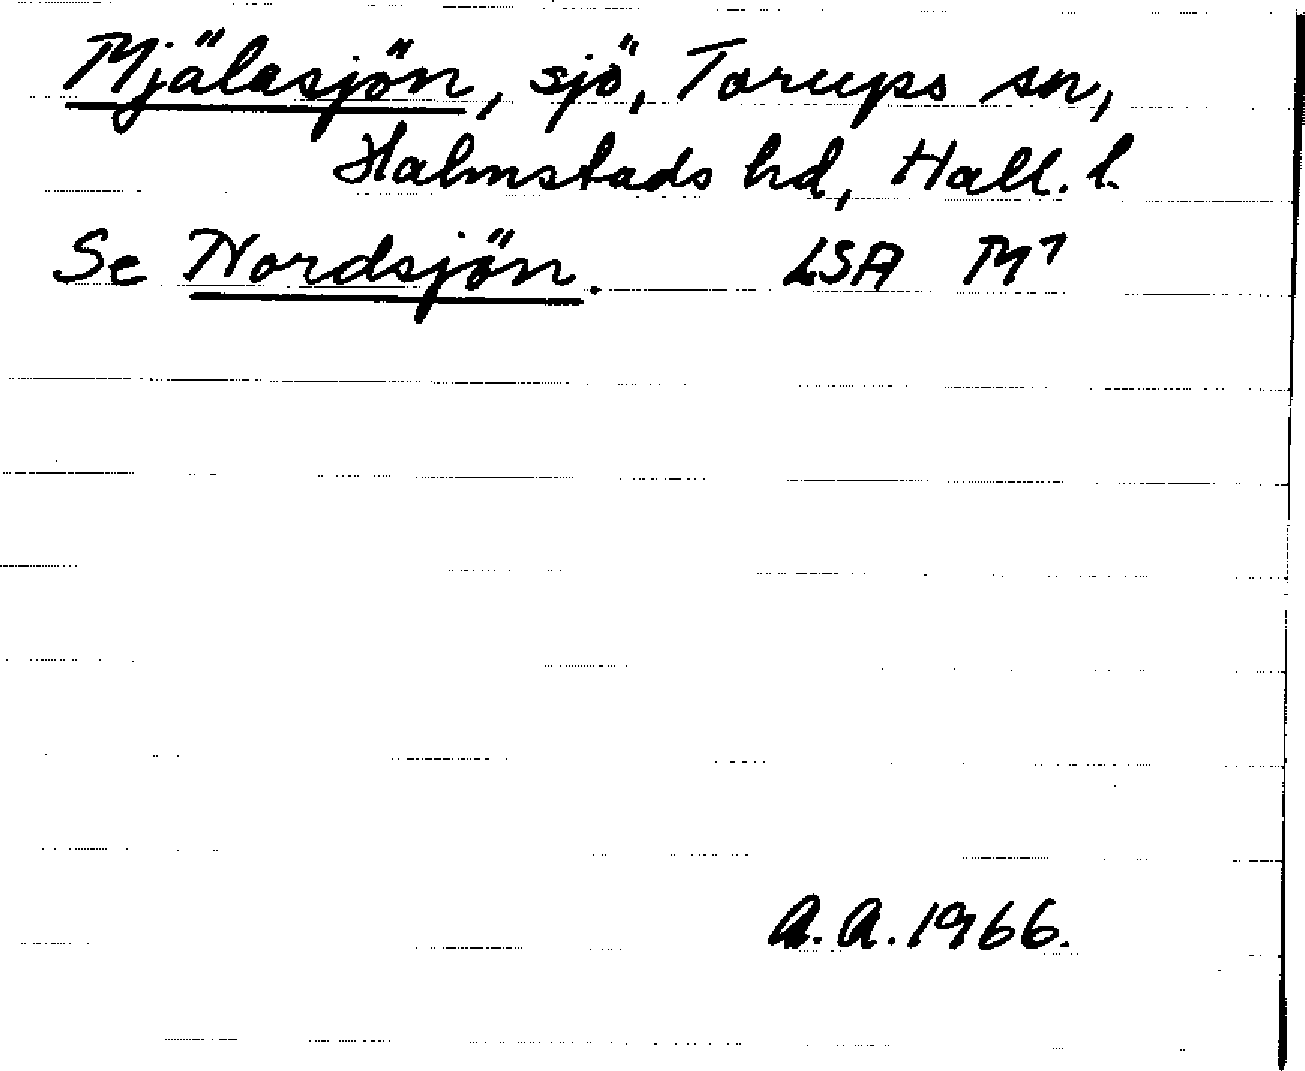 Mjälasjön, sjö, Torups sn,
Halmstads hd, Hall. l.
Se Nordsjön. LSA M7
A.A. 1966.